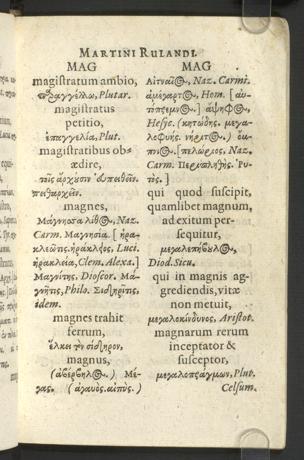 MARTINI RULANDI.
MAG
magistratum ambio,
παραγγέλλω, Plutar.
magistratus
petitio,
ἐπαγγελία, Plut.
magistratibus ob-
ædire,
τοῖς ἄρχουσιν
magnes,
Μάγνησσα λίθος, Naz.
Carm. Μαγνησία. [ἡρα-
κλεῶτις. ἡρακλῆος. Luci.
ἡρακλεία, Clem. Alexa.]
Μαγνίτης. Dioscor. Μα-
γνῆτις, Philo. Σιδηρῖτις.
idem.
magnes trahit
ferrum,
ἕλκει τὸν σίδηρον,
magnus,
Μέ-
γας. (ἀγαυὸς. αἰπὺς.)
MAG
Naz. Carmi.
Hom. [ἀυ-
Hesyc.
Naz.
Carm.
τὸς.]
qui quod suscipit,
quamlibet magnum,
ad exitum per-
sequitur,
μεγαλεπήβολος,
Diod. Sicu.
qui in magnis ag-
grediendis, vitæ
non metuit,
μεγαλοκίνδυνος. Aristot.
magnarum rerum
inceptator &
susceptor,
μεγαλοπράγμων, Plut.
Celsum.